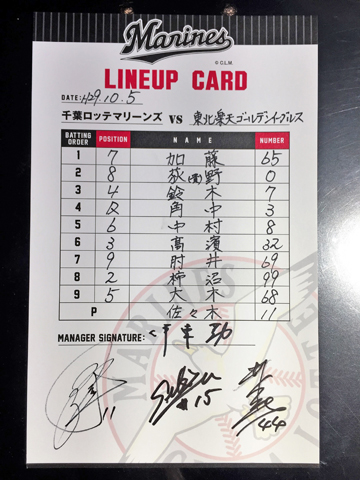 Marines
©C.L.M.
LINEUP CARD
DATE: H29.10.5
千葉ロッテマリーンズ VS 東北楽天ゴールデンイーグルス
BATTING ORDER POSITION NAME NUMBER
1 7 加藤 65
2 8 荻(貴)野 0
3 4 鈴木 7
4 D 角中 3
5 6 中村 8
6 3 高濱 32
7 9 肘井 69
8 2 柿沼 99
9 5 大木 68
P 佐々木 11
MANAGER SIGNATURE:
11
15
44